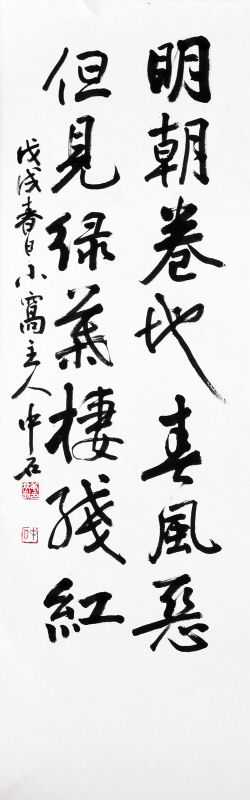 明朝卷地春風惡
但見绿葉棲残紅
戊戌春日小窩主人中石